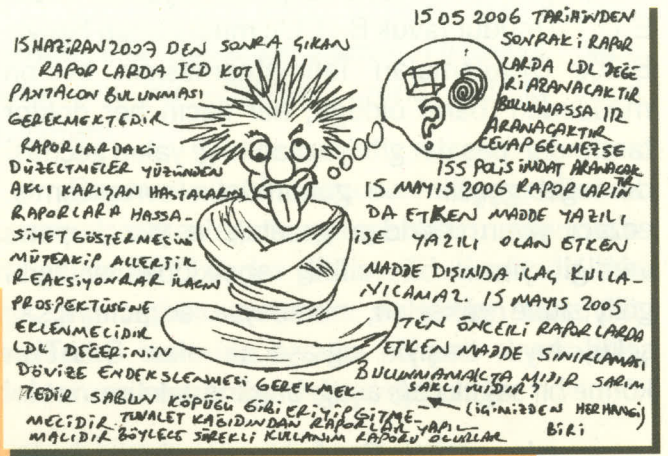 15 HAZİRAN 2007 DEN SONRA ÇIKAN
RAPORLARDA ICD KOT
PANTALON BULUNMASI
GEREKMEKTEDİR
RAPORLARDAKİ
DÜZELTMELER YÜZÜNDEN
AKLI KARIŞAN HASTALARIN
RAPORLARA HASSA-
SİYET GÖSTERMESİNİ
MÜTEAKİP ALLERJİK
REAKSİYONRAR İLACIN
PROSPEKTÜSÜNE
EKLENMELİDİR
LDL DEĞERİNİN
DÖVİZE ENDEKSLENMESİ GEREKMEK-
TEDİR SABUN KÖPÜĞÜ GİBİ ERİYİP GİTME-
MELİDİR TUVALET KAĞIDINDAN RAPORLAR YAPIL-
MALIDIR BÖYLECE SÜREKLİ KULLANIM RAPORU OLURLAR
15 05 2006 TARİHİNDEN
SONRAKİ RAPOR
LARDA LDL DEĞE
Rİ ARANACAKTIR
BULUNMASSA 112
ARANACAKTIR
CEVAP GELMEZSE
155 POLİS İMDAT ARANACAK
TIR
15 MAYIS 2006 RAPORLARIN
DA ETKEN MADDE YAZILI
İSE YAZILI OLAN ETKEN
MADDE DIŞINDA İLAÇ KULLA-
NILAMAZ. 15 MAYIS 2005
TEN ÖNCEKİ RAPORLARDA
ETKEN MADDE SINIRLAMASI
BULUNMAMAKTA MIDIR SARIM
SAKLI MIDIR?
(İÇİMİZDEN HERHANGİ
BİRİ